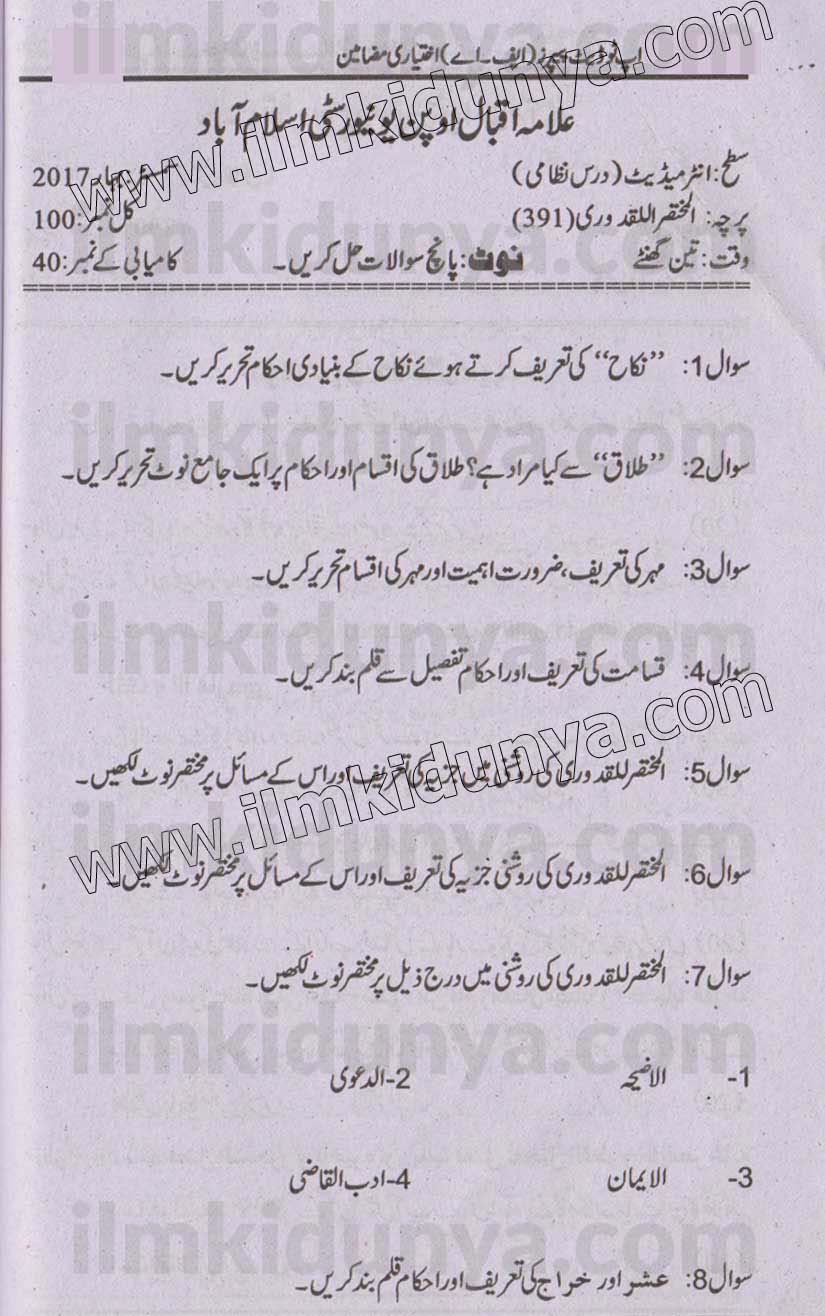 اپ ٹو ڈیٹ پیپرز (ایف۔اے) اختیاری مضامین
علامہ اقبال اوپن یونیورسٹی اسلام آباد
سطح: انٹرمیڈیٹ (درس نظامی) سمسٹر: بہار 2017
پرچہ: المختصر اللقدوری (391) کل نمبر: 100
وقت: تین گھنٹے نوٹ: پانچ سوالات حل کریں۔ کامیابی کے نمبر: 40
سوال 1: ”نکاح“ کی تعریف کرتے ہوئے نکاح کے بنیادی احکام تحریر کریں۔
سوال 2: ”طلاق“ سے کیا مراد ہے؟ طلاق کی اقسام اور احکام پر ایک جامع نوٹ تحریر کریں۔
سوال 3: مہر کی تعریف، ضرورت اہمیت اور مہر کی اقسام تحریر کریں۔
سوال 4: قسامت کی تعریف اور احکام تفصیل سے قلم بند کریں۔
سوال 5: المختصر للقدوری کی روشنی میں جزیہ کی تعریف اور اس کے مسائل پر مختصر نوٹ لکھیں۔
سوال 6: المختصر للقدوری کی روشنی جزیہ کی تعریف اور اس کے مسائل پر مختصر نوٹ لکھیں۔
سوال 7: المختصر للقدوری کی روشنی میں درج ذیل پر مختصر نوٹ لکھیں۔
1- الاضیحہ 2-الدعوی
3- الایمان 4-ادب القاضی
سوال 8: عشر اور خراج کی تعریف اور احکام قلم بند کریں۔
www.ilmkidunya.com
www.ilmkidunya.com
ilmkidunya.com
ilmkidunya.com
ilmkidunya.com
ilmkidunya.com
ilmkidunya.com
ilmkidunya.com
ilmkidunya.com